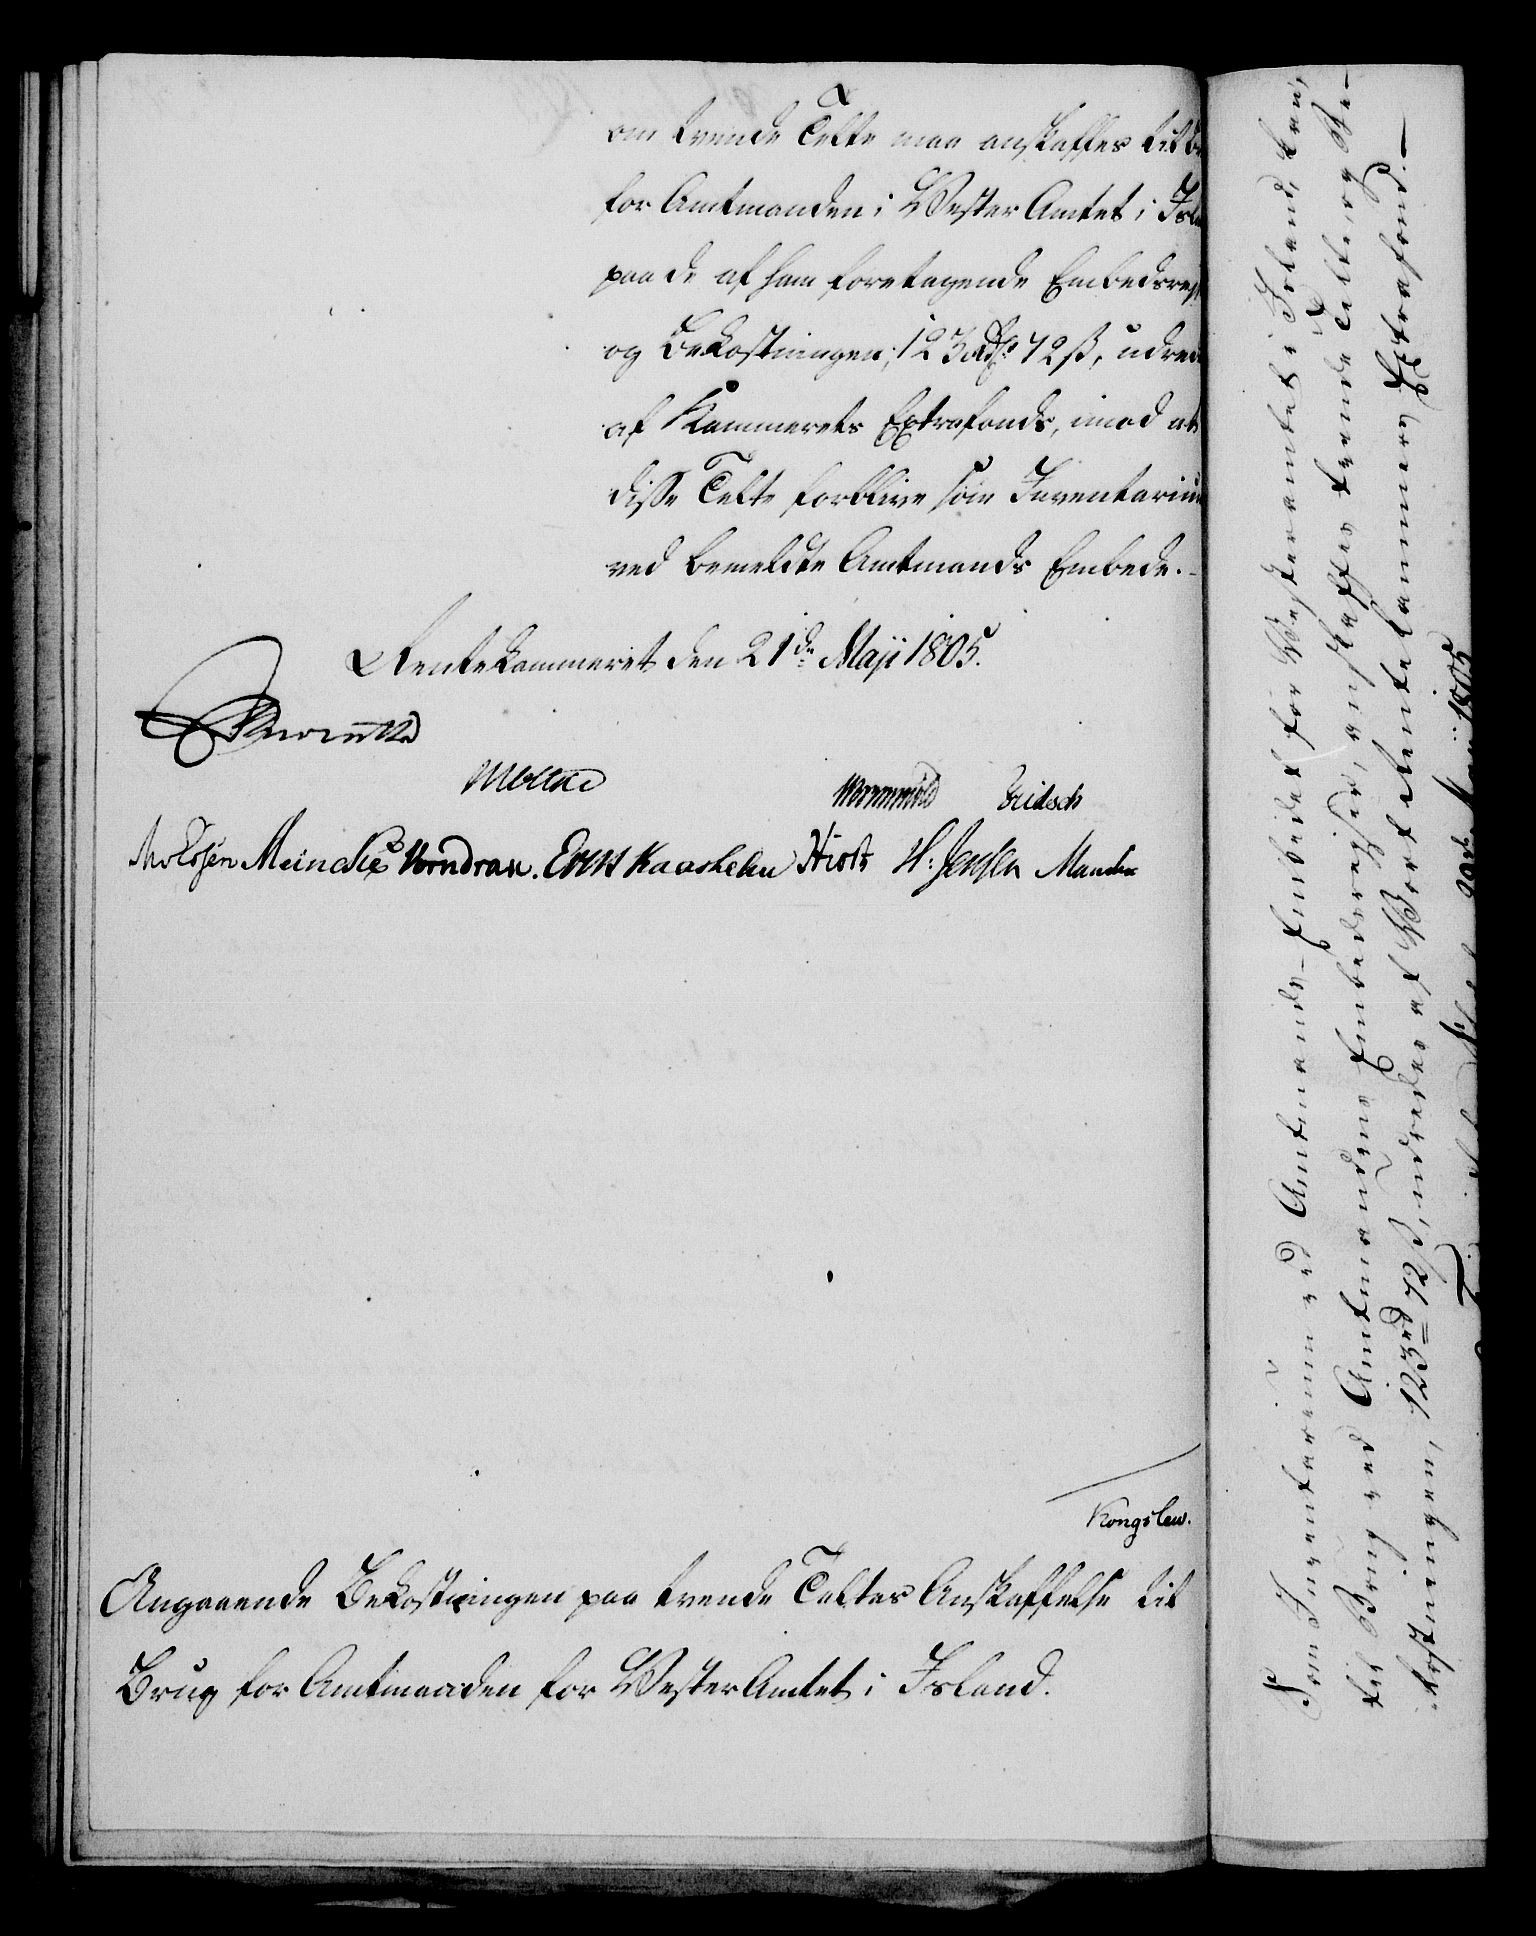 om trende Telte maa anskaffes til
for Amtmanden i Vester Amtet i Isl
paa de af ham foretagende Embedsrej
og Bekostningen, 123 Rdr 72 ß, udred
af Kammerets Extrafonds, imod at
disse Telte forblive som Inventarium
ved bemeldte Amtmands Embede.
Rentekammeret den 21de Maji 1805.
Reventlow
Moltke Wormskiold Fritsch
Meincke Vorndran. Evers Knashelm Hirth H: Jensen
Kongslew.
Angaaende Bekostningen paa trende Teltes Anskaffelse til
Brug for Amtmanden for Vester Amtet i Island.
Som Inventarium ved Amtmands-Embedet for Vesteramtet i Island, kan,
til Brug ved Amtmandens Embedsrejser, anskaffes trende Telte, og Be-
kostningen, 123 rd 72 ß, udredes af Vort Rentekammers Extrafond.—
Maji 1805